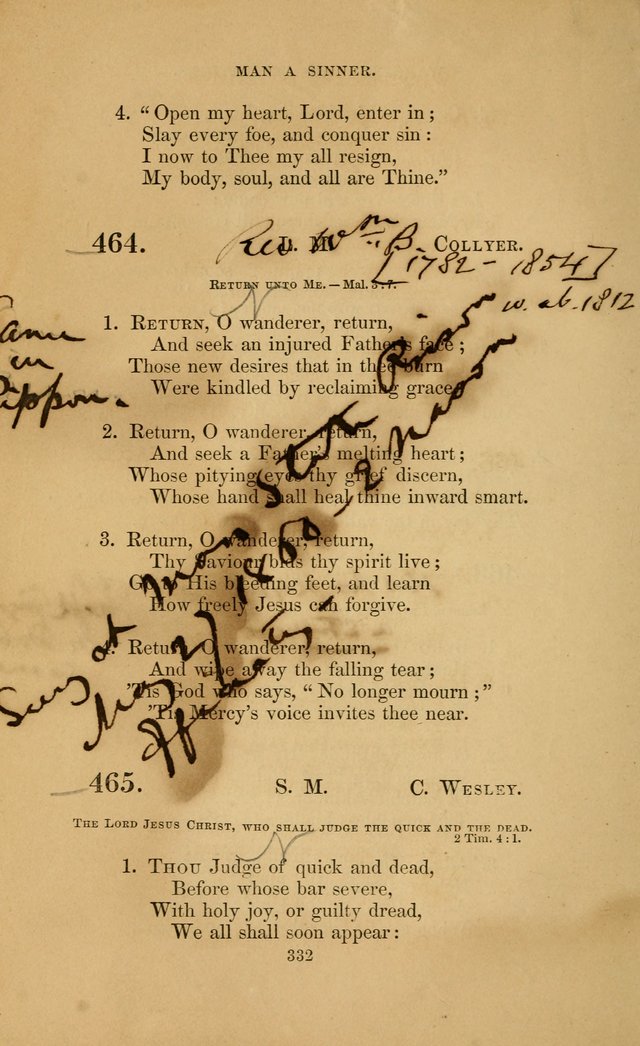 MAN A SINNER.
4. “Open my heart, Lord, enter in;
Slay every foe, and conquer sin:
I now to Thee my all resign,
My body, soul, and all are Thine.”
464. L. M. Collyer.
Rev Wm B.
[1782 - 1854]
w. ab. 1812
Return unto Me. — Mal. 3:7.
in
Rippon.
1. Return, O wanderer, return,
And seek an injured Father's face;
Those new desires that in thee burn
Were kindled by reclaiming grace.
2. Return, O wanderer, return,
And seek a Father's melting heart;
Whose pitying eyes thy grief discern,
Whose hand shall heal thine inward smart.
3. Return, O wanderer, return,
Thy Saviour bids thy spirit live;
Go to His bleeding feet, and learn
How freely Jesus can forgive.
4. Return, O wanderer, return,
And wipe away the falling tear;
'Tis God who says, “No longer mourn;”
'Tis Mercy's voice invites thee near.
Sung at Mass State Prison
May 2/1868,
465. S. M. C. Wesley.
The Lord Jesus Christ, who shall judge the quick and the dead.
2 Tim. 4:1.
1. Thou Judge of quick and dead,
Before whose bar severe,
With holy joy, or guilty dread,
We all shall soon appear:
332